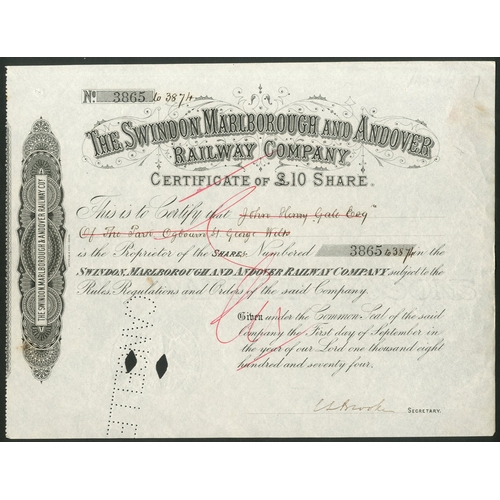 No. 3865 to 3874
THE SWINDON MARLBOROUGH AND ANDOVER
RAILWAY COMPANY.
CERTIFICATE OF £10 SHARE.
This is to Certify that John Henry Gale Esq
Of The Parr, Ogbourn St. George Wilts
is the Proprietor of the SHARES Numbered 3865 to 3874 in the
SWINDON, MARLBOROUGH AND ANDOVER RAILWAY COMPANY subject to the
Rules, Regulations and Orders of the said Company.
Given under the Common Seal of the said
Company the First day of September in
the year of our Lord one thousand eight
hundred and seventy four.
SECRETARY.
THE SWINDON MARLBOROUGH & ANDOVER RAILWAY COY.